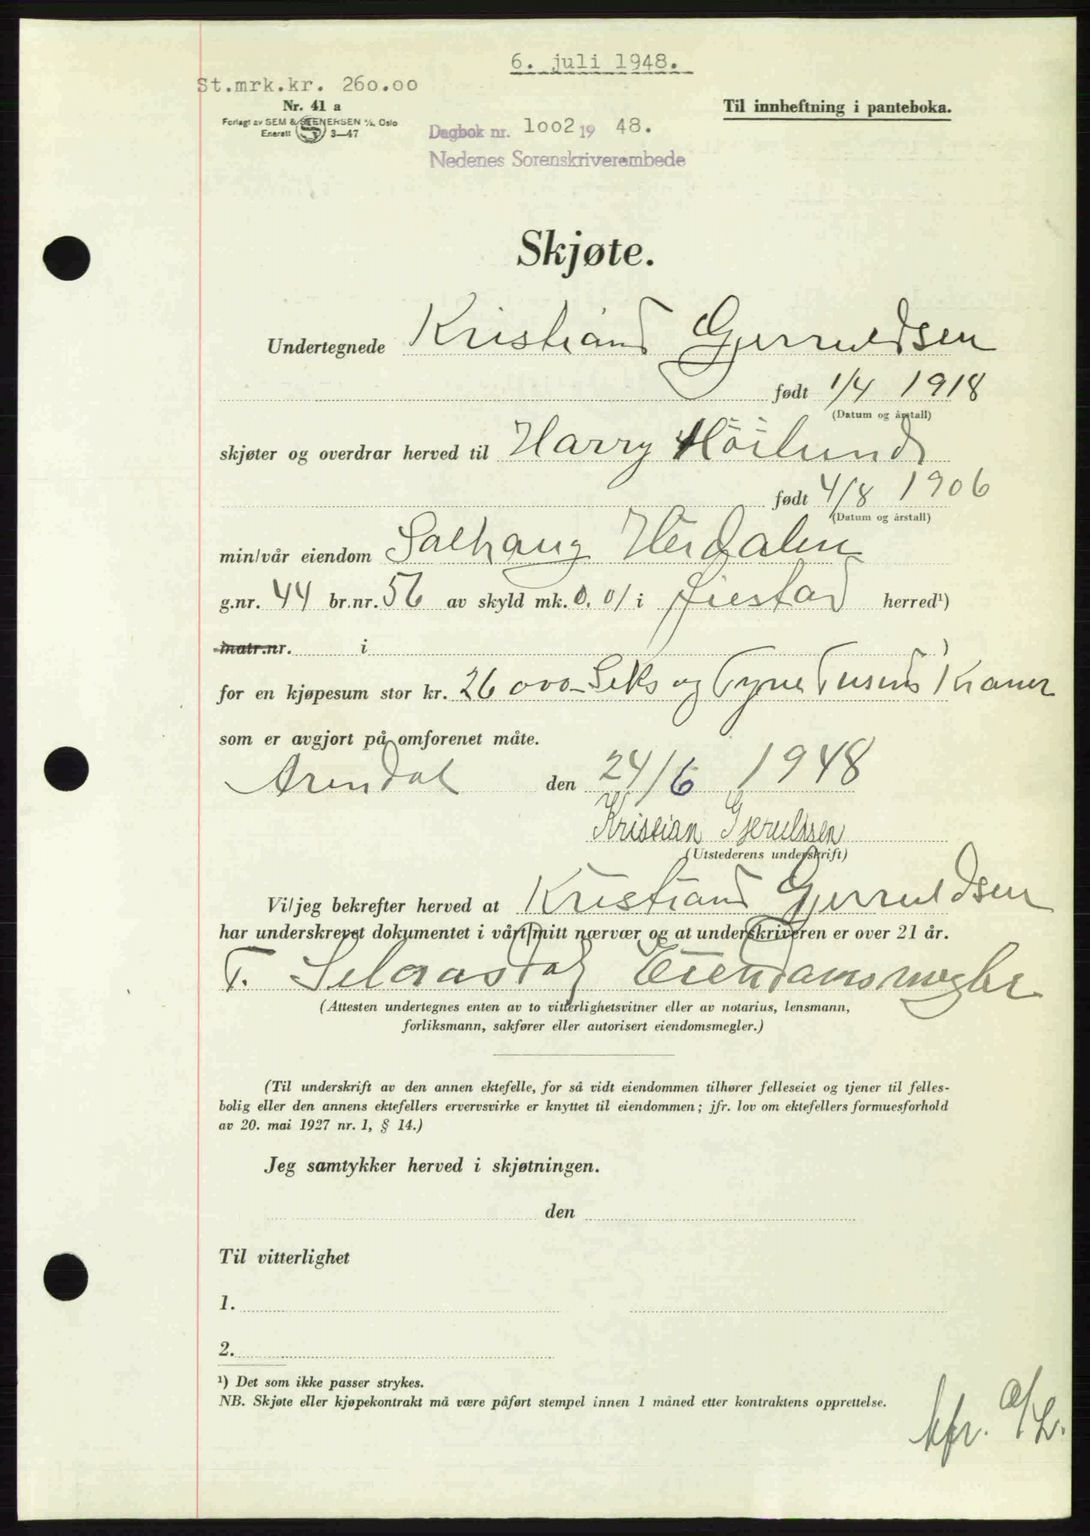 6. juli 1948.
St.mrk.kr. 260.00
Nr. 41 a
Til innheftning i panteboka.
Forlagt av SEM & STENERSEN A/S, Oslo
Enerett 3—47
Dagbok nr. 1002 19 48.
Nedenes Sorenskriverembede
Skjøte.
Undertegnede Kristiand Gjerruldsen
født 1/4 1918
(Datum og årstall)
skjøter og overdrar herved til Harry Höilund
født 4/8 1906
(Datum og årstall)
min/vår eiendom Solhaug Herdalen
g.nr. 44 br.nr. 56 av skyld mk. 0.01 i Øiestad herred¹)
matr.nr. i
for en kjøpesum stor kr. 26000 - Seks og Tyve Tusind Kroner
som er avgjort på omforenet måte.
Arendal den 24/6 1948
Kristian Gjerulssen
(Utstederens underskrift)
Vi/jeg bekrefter herved at Kristiand Gjerruldsen
har underskrevet dokumentet i vårt/mitt nærvær og at underskriveren er over 21 år.
T. Selaasdal Eiendomsmegler
(Attesten undertegnes enten av to vitterlighetsvitner eller av notarius, lensmann,
forliksmann, sakfører eller autorisert eiendomsmegler.)
(Til underskrift av den annen ektefelle, for så vidt eiendommen tilhører felleseiet og tjener til felles-
bolig eller den annens ektefellers ervervsvirke er knyttet til eiendommen; jfr. lov om ektefellers formuesforhold
av 20. mai 1927 nr. 1, § 14.)
Jeg samtykker herved i skjøtningen.
den
Til vitterlighet
1.
2.
¹) Det som ikke passer strykes.
NB. Skjøte eller kjøpekontrakt må være påført stempel innen 1 måned etter kontraktens opprettelse.
kfr.